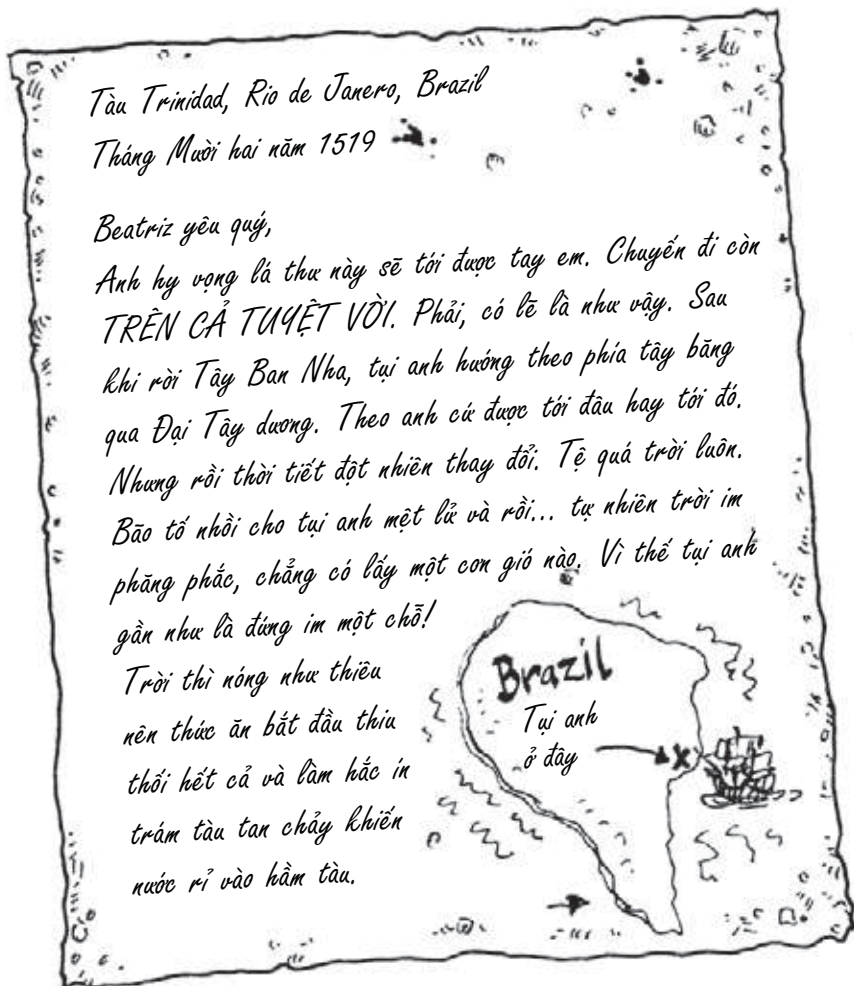 Tàu Trinidad, Rio de Janero, Brazil
Tháng Mười hai năm 1519
Beatriz yêu quý,
Anh hy vọng lá thư này sẽ tới được tay em. Chuyến đi còn
TRÊN CẢ TUYỆT VỜI. Phải, có lẽ là như vậy. Sau
khi rời Tây Ban Nha, tụi anh hướng theo phía tây băng
qua Đại Tây dương. Theo anh cứ được tới đâu hay tới đó.
Nhưng rồi thời tiết đột nhiên thay đổi. Tệ quá trời luôn.
Bão tố nhồi cho tụi anh mệt lử và rồi... tự nhiên trời im
phăng phắc, chẳng có lấy một cơn gió nào. Vì thế tụi anh
gần như là đứng im một chỗ!
Trời thì nóng như thiêu
nên thức ăn bắt đầu thiu
thối hết cả và làm hắc ín
trám tàu tan chảy khiến
nước rỉ vào hầm tàu.
Brazil
Tụi anh
ở đây
X